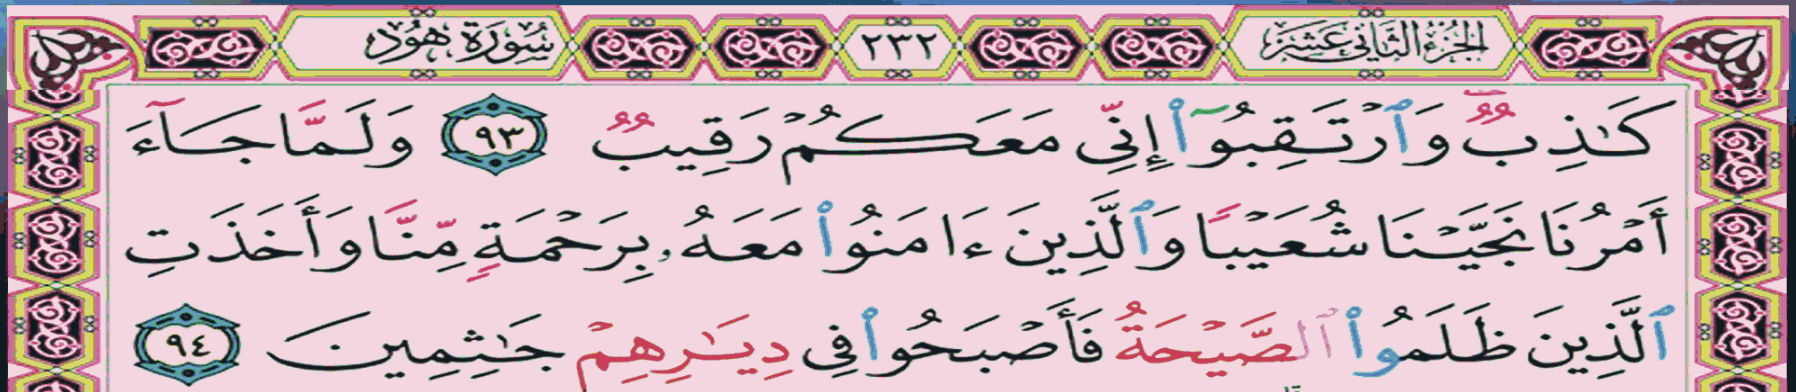 الجزء الثاني عشر
٢٣٢
سورة هود
كَـٰذِبٌ وَٱرْتَقِبُوٓا۟ إِنِّى مَعَكُمْ رَقِيبٌ ٩٣ وَلَمَّا جَآءَ
أَمْرُنَا نَجَّيْنَا شُعَيْبًا وَٱلَّذِينَ ءَامَنُوا۟ مَعَهُۥ بِرَحْمَةٍ مِّنَّا وَأَخَذَتِ
ٱلَّذِينَ ظَلَمُوا۟ ٱلصَّيْحَةُ فَأَصْبَحُوا۟ فِى دِيَـٰرِهِمْ جَـٰثِمِينَ ٩٤